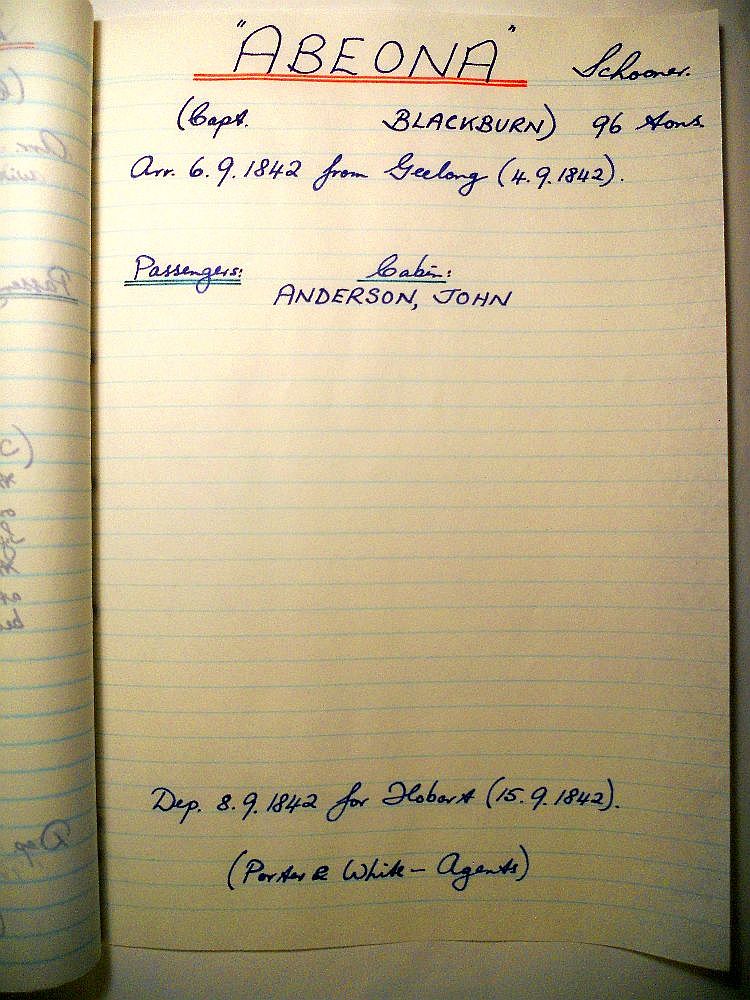 "ABEONA" Schooner.
(Capt. BLACKBURN) 96 tons.
Arr. 6.9.1842 from Geelong (4.9.1842).
Passengers: Cabin:
ANDERSON, JOHN
Dep. 8.9.1842 for Hobart (15.9.1842).
(Porter & White - Agents)